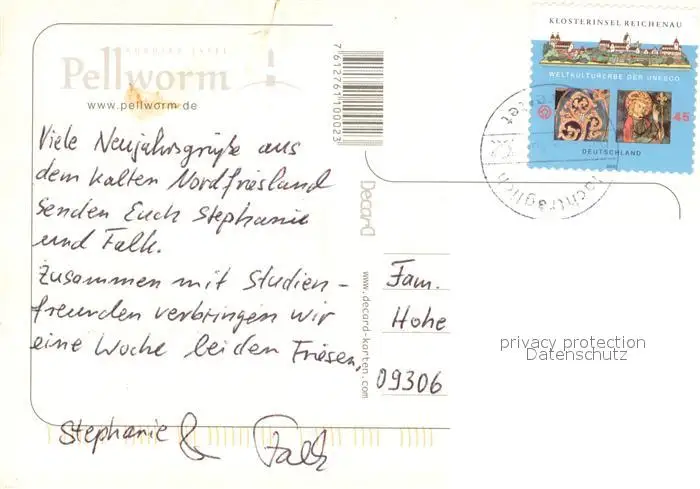 NORDSEE INSEL
Pellworm
www.pellworm.de
7612761100023
KLOSTERINSEL REICHENAU
WELTKULTURERBE DER UNESCO
45
DEUTSCHLAND
nachträglich
Viele Neujahrsgrüße aus
dem kalten Nordfriesland
senden Euch Stephanie
und Falk.
Zusammen mit Studien-
freunden verbringen wir
eine Woche bei den Friesen.
Stephanie & Falk
Decard
www.decard-karten.com
Fam.
Hohe
09306
privacy protection
Datenschutz